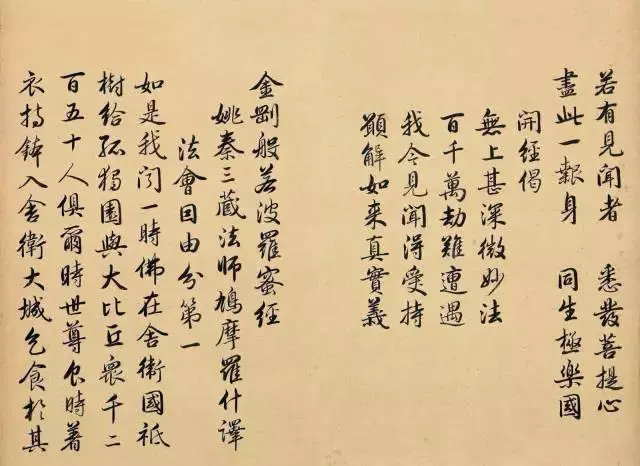 若有見聞者 悉發菩提心
盡此一報身 同生極樂國
開經偈
無上甚深微妙法
百千萬劫難遭遇
我今見聞得受持
願解如来真實義
金剛般若波羅蜜經
姚秦三藏法師鳩摩羅什譯
法會因由分第一
如是我聞一時佛在舍衛國祇
樹給孤獨園與大比丘衆千二
百五十人俱爾時世尊食時著
衣持鉢入舍衛大城乞食於其